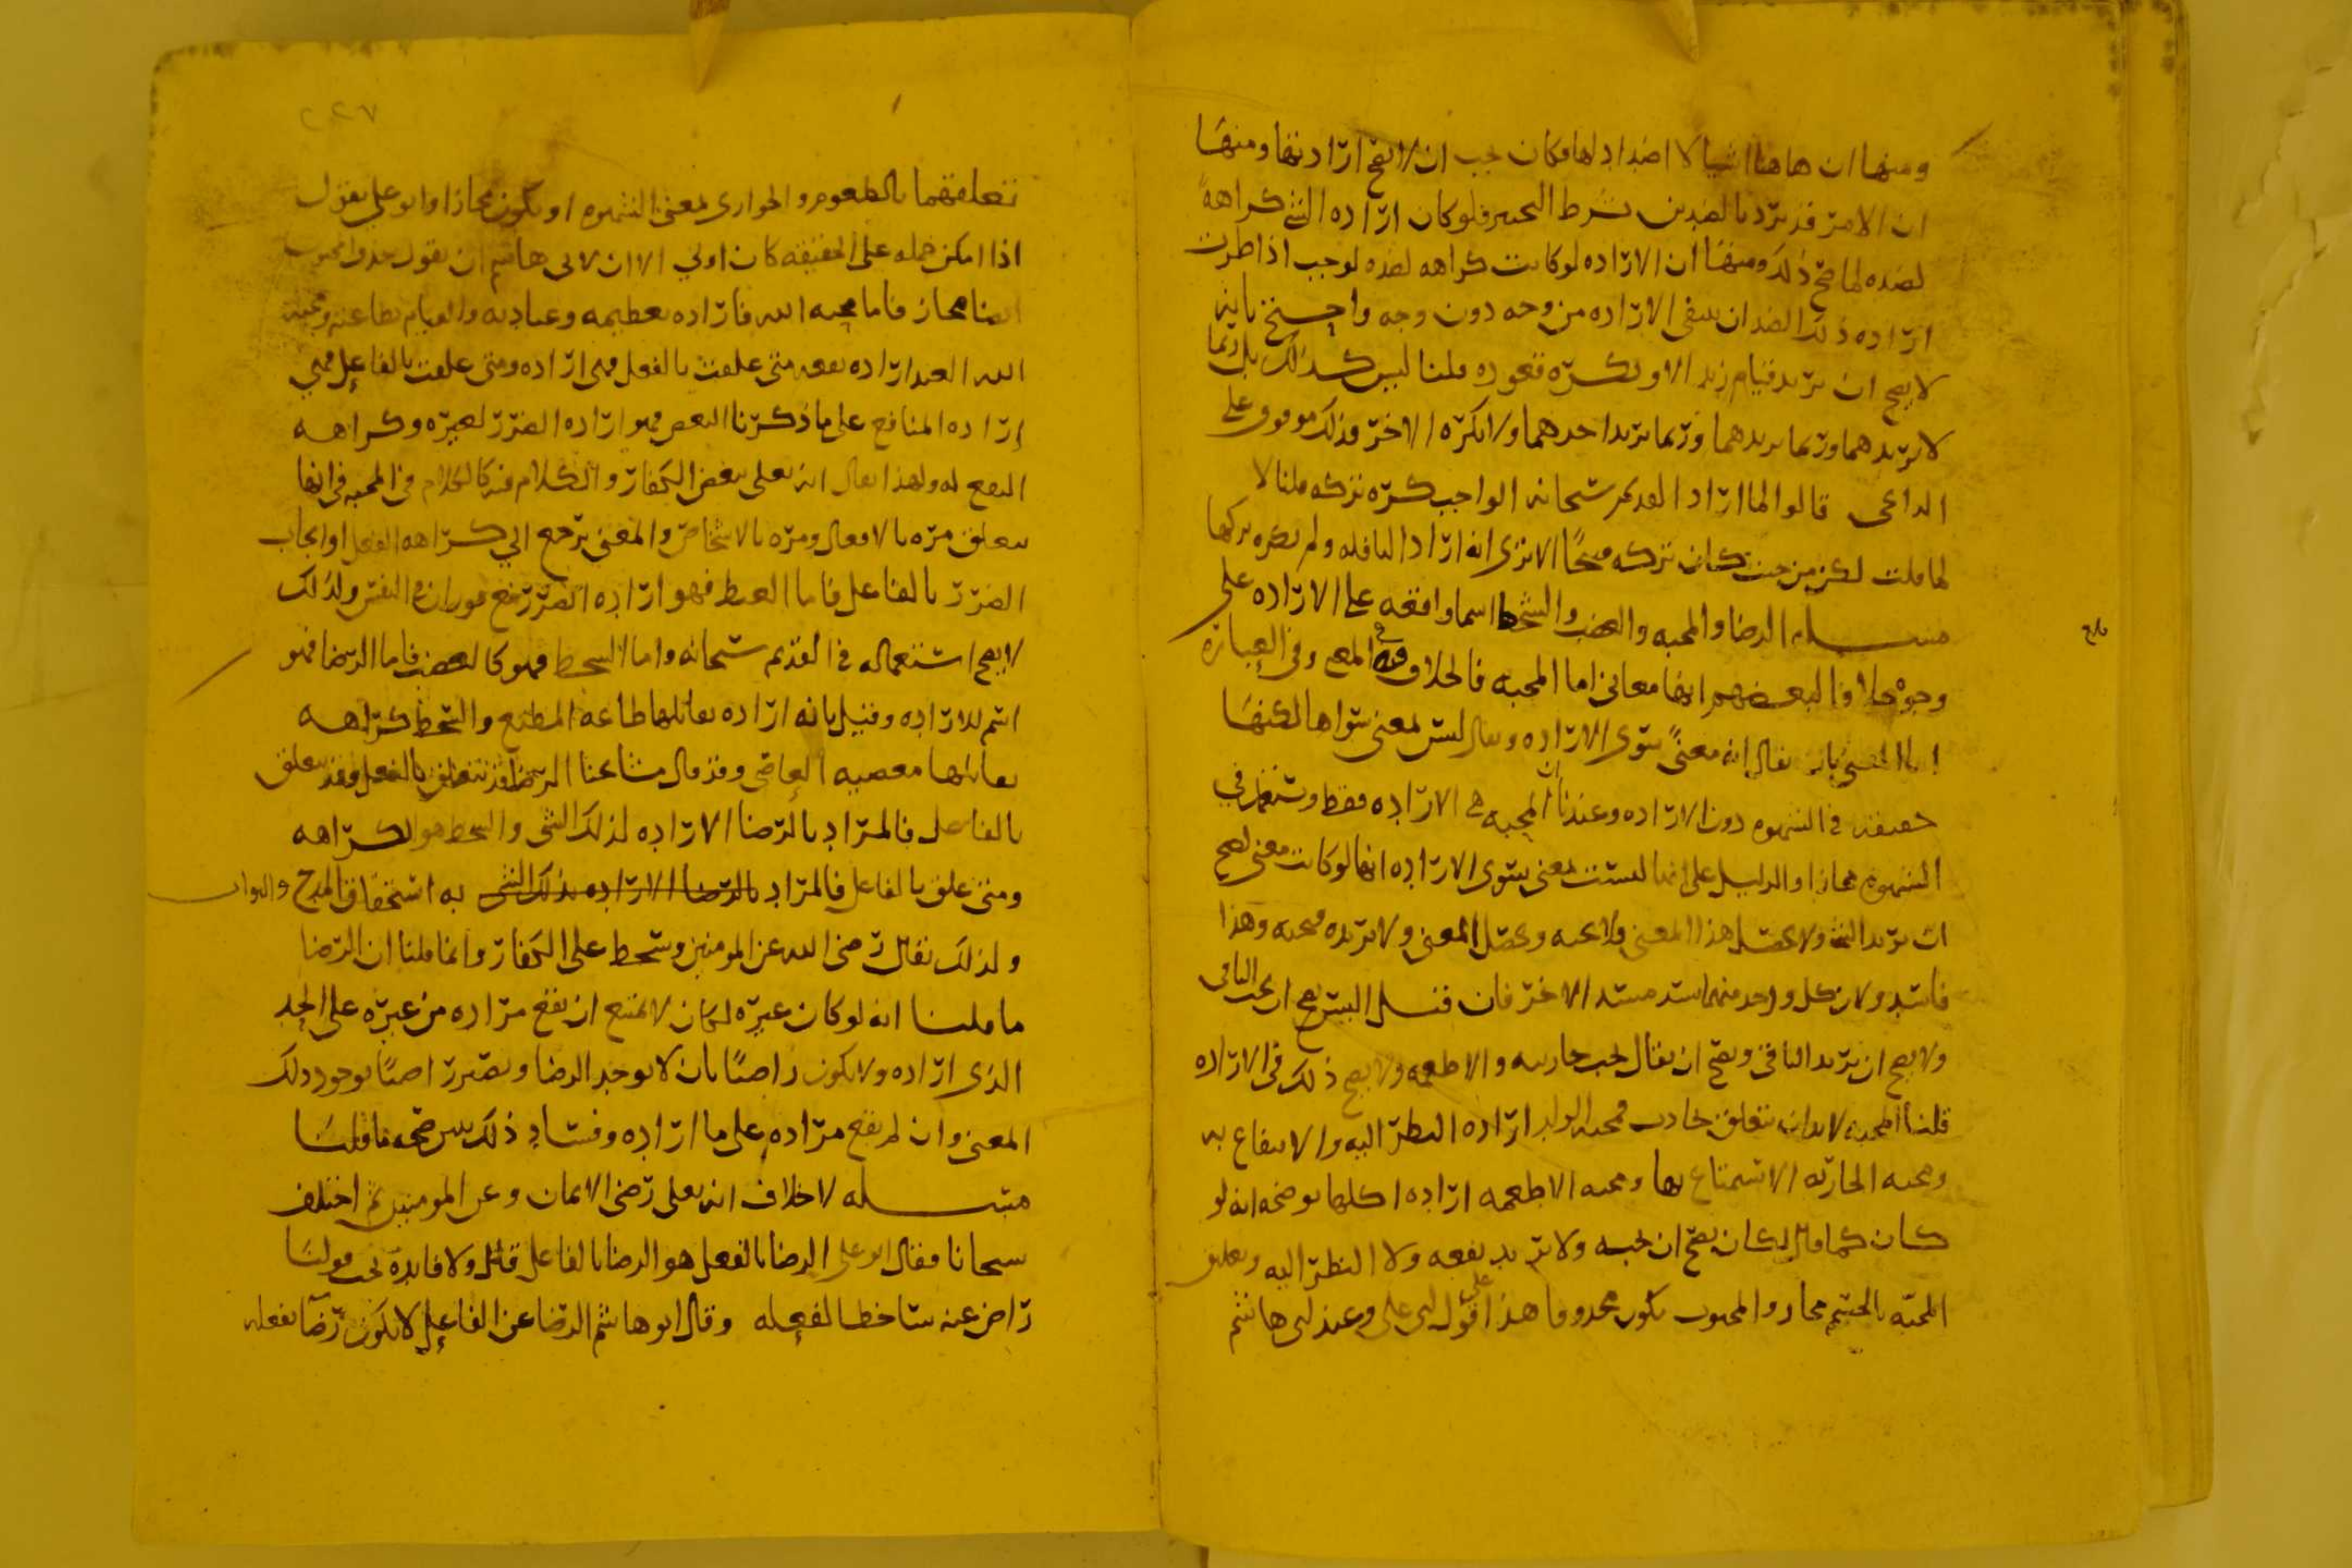 ومنها ان هاهنا اشيا لا اضداد لها فكان يجب ان لا تصح ارادتها ومنها
ان الامر قد يريد بالضدين بشرط التخيير فلو كان ارادة الشي كراهة
لضده لما صح ذلك ومنها ان الارادة لو كانت كراهة لضده لوجب اذا طرت
ارادة ذلك الضد ان ينفي الارادة من وجه دون وجه واحتج بانه
لا يصح ان يريد قيام زيد الا ويكره قعوده قلنا ليس كذلك بل ربما
لا يريدهما وربما يريدهما وربما يريد احدهما ولا يكره الاخر وذلك موقوف على
الداعي قالوا لما اراد القديم سبحانه الواجب كره تركه قلنا لا
لما قلت لكن من حيث كان تركه قبيحًا الا ترى انه اراد النافله ولم يكره تركها
مسله الرضا والمحبه والغضب والسخط اسما واقعه على الارادة على
وجوه خلافا لبعضهم انها معاني اما المحبه فالخلاف فيه في المعنى وفي العبارة
اما المعنى بان يقال انه معنًى سوى الارادة ويقال ليس لمعنى سواها لكنها
حقيقه في الشهوه دون الارادة وعندنا ان المحبه هي الارادة فقط وتستعمل في
الشهوه مجازا والدليل على انها ليست معنى سوى الارادة انها لو كانت معنى لصح
ان يريد الشي ولا يحصل هذا المعنى فلا يحبه ويحصل المعنى ولا يريده فيحبه وهذا
فاسد ولان كل واحد منهما يسد مسد الاخر فان قيل اليس يصح ان يحب الباقي
ولا يصح ان يريد الباقي ويصح ان يقال يحب جاريته والاطعمه ولا يصح ذلك في الارادة
قلنا المحبه لا بد ان تتعلق بحادث فمحبه الولد ارادة النظر اليه والانتفاع به
ومحبه الجاريه الاستمتاع بها ومحبه الاطعمه ارادة اكلها يوضحه انه لو
كان كما قال لكان يصح ان يحبه ولا يريد نفعه ولا النظر اليه وتعليق
المحبه بالجسم مجاز والمحبوب يكون محذوفا هذا على قول ابي علي وعند ابي هاشم
٢٢٧
تعلقهما بالطعوم والجواري بمعنى الشهوه او يكون مجازا وابو علي يقول
اذا امكن حمله على الحقيقه كان اولي الا ان لابي هاشم ان يقول حذف المحبوب
ايضا مجاز فاما محبه الله فارادة تعظيمه وعبادته والقيام بطاعته ومحبه
الله العبد ارادة نفعه متى علقت بالفعل فهي ارادة ومتى علقت بالفاعل فهي
ارادة المنافع على ما ذكرنا البغض فهو ارادة الضرر لغيره وكراهه
النفع له ولهذا يقال انه تعلى يبغض الكفار والكلام فيه كالكلام في المحبه في انها
تتعلق مره بالافعال ومره بالاشخاص والمعنى يرجع الي كراهه الفعل او ايجاب
الضرر بالفاعل فاما الغيظ فهو ارادة الضرر مع فوران في النفس ولذلك
لا يصح استعماله في القديم سبحانه واما السخط فهو كالغضب فاما الرضا فهو
اسم للارادة وقيل بانه ارادة يقابلها طاعه المطيع والسخط كراهه
يقابلها معصيه العاصي وقد قال مشايخنا الرضا قد تتعلق بالفعل وقد تتعلق
بالفاعل فالمراد بالرضا الارادة لذلك الشي والسخط هو الكراهه
ومتى علق بالفاعل فالمراد بالرضا الارادة بذلك الشي به استحقاق المدح والثواب
ولذلك يقال رضي الله عن المومنين وسخط على الكفار وانما قلنا ان الرضا
ما قلنا انه لو كان غيره لكان لا يمتنع ان يقع مراده من غيره على الحد
الذي اراده ولا يكون راضيًا بان لا يوجد الرضا ويصير راضيًا بوجود ذلك
المعنى وان لم يقع مراده على ما اراده وفساد ذلك يبين صحه ما قلنا
مسله لا خلاف انه تعلى رضي الايمان وعن المومنين ثم اختلف
شيخانا فقال ابو علي الرضا بالفعل هو الرضا بالفاعل قال ولا فايدة تحت قولنا
راض عنه ساخط لفعله وقال ابو هاشم الرضا عن الفاعل لا يكون رضآ بفعله